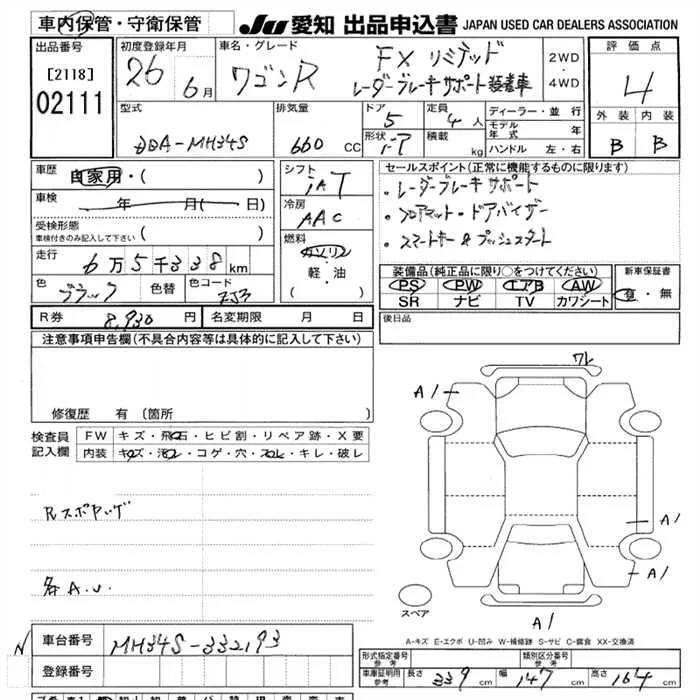 車内保管・守衛保管
JU 愛知 出品申込書 JAPAN USED CAR DEALERS ASSOCIATION
出品番号
[2118]
02111
初度登録年月
26 6月
車名・グレード
ワゴンR
FX リミテッド
レーダーブレーキサポート装着車
2WD
・
4WD
評価点
4
外装 内装
B B
型式
DBA-MH34S
排気量
660 CC
ドア
5
形状
定員
4人
積載
kg
ディーラー・並行
モデル年式 年
ハンドル 左・右
車歴
自家用・( )
車検
年 月( 日)
受検形態
車検付きのみ記入して下さい ( )
走行
6万5千338km
色
ブラック
色替
色コード
ZJ3
シフト
冷房
AAC
燃料
ガソリン
軽・油
( )
セールスポイント(正常に機能するものに限ります)
・レーダーブレーキサポート
・フロアマット・ドアバイザー
・スマートキー&プッシュスタート
装備品(純正品に限り○をつけてください)
PS PW エアB AW
SR ナビ TV カワシート
新車保証書
有・無
R券 8,930円
名変期限 月 日
後日品
注意事項申告欄(不具合内容等は具体的に記入して下さい)
修復歴 有 (箇所 )
検査員
記入欄
FW キズ・飛石・ヒビ割・リペア跡・X要
内装 キズ・汚レ・コゲ・穴・スレ・キレ・破レ
各A.U.
ワレ
A1
A1
A1
A1
スペア
A-キズ E-エクボ U-凹み W-補修跡 S-サビ C-腐食 XX-交換済
車台番号
MH34S-332193
登録番号
型式指定番号
参考
類別区分番号
参考
車庫証明用
参考
長さ 339cm
幅 147cm
高さ 164cm